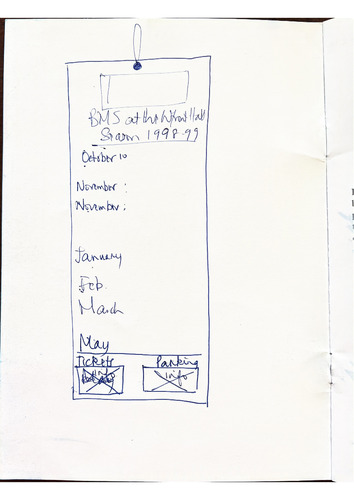 BMS at the Wfront Hall
Season 1998-99
October 10
November :
November :
January
Feb.
March
May
Tickets
Parking
info